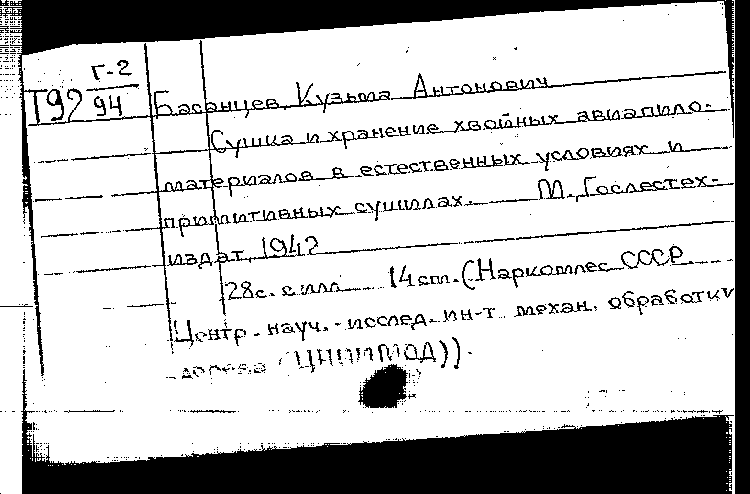 Г-2
Т92 94
Басанцев, Кузьма Антонович
Сушка и хранение хвойных авиапило-
материалов в естественных условиях и
примитивных сушилах. М., Гослестех-
издат, 1942
28с. с илл 14 см. (Наркомлес СССР.
Центр. науч.-исслед. ин-т механ. обработки
дерева (ЦНИИМОД)).